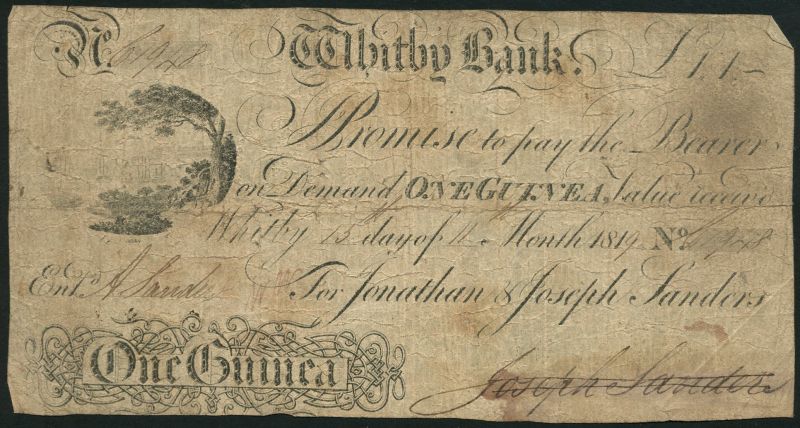 No. 6948 Whitby Bank. £1,1-
I Promise to pay the Bearer
on Demand ONE GUINEA, Value receive
Whitby 15 day of 11 Month 1819 No. 6948
Entd. A Sanders For Jonathan & Joseph Sanders
One Guinea
Joseph Sanders